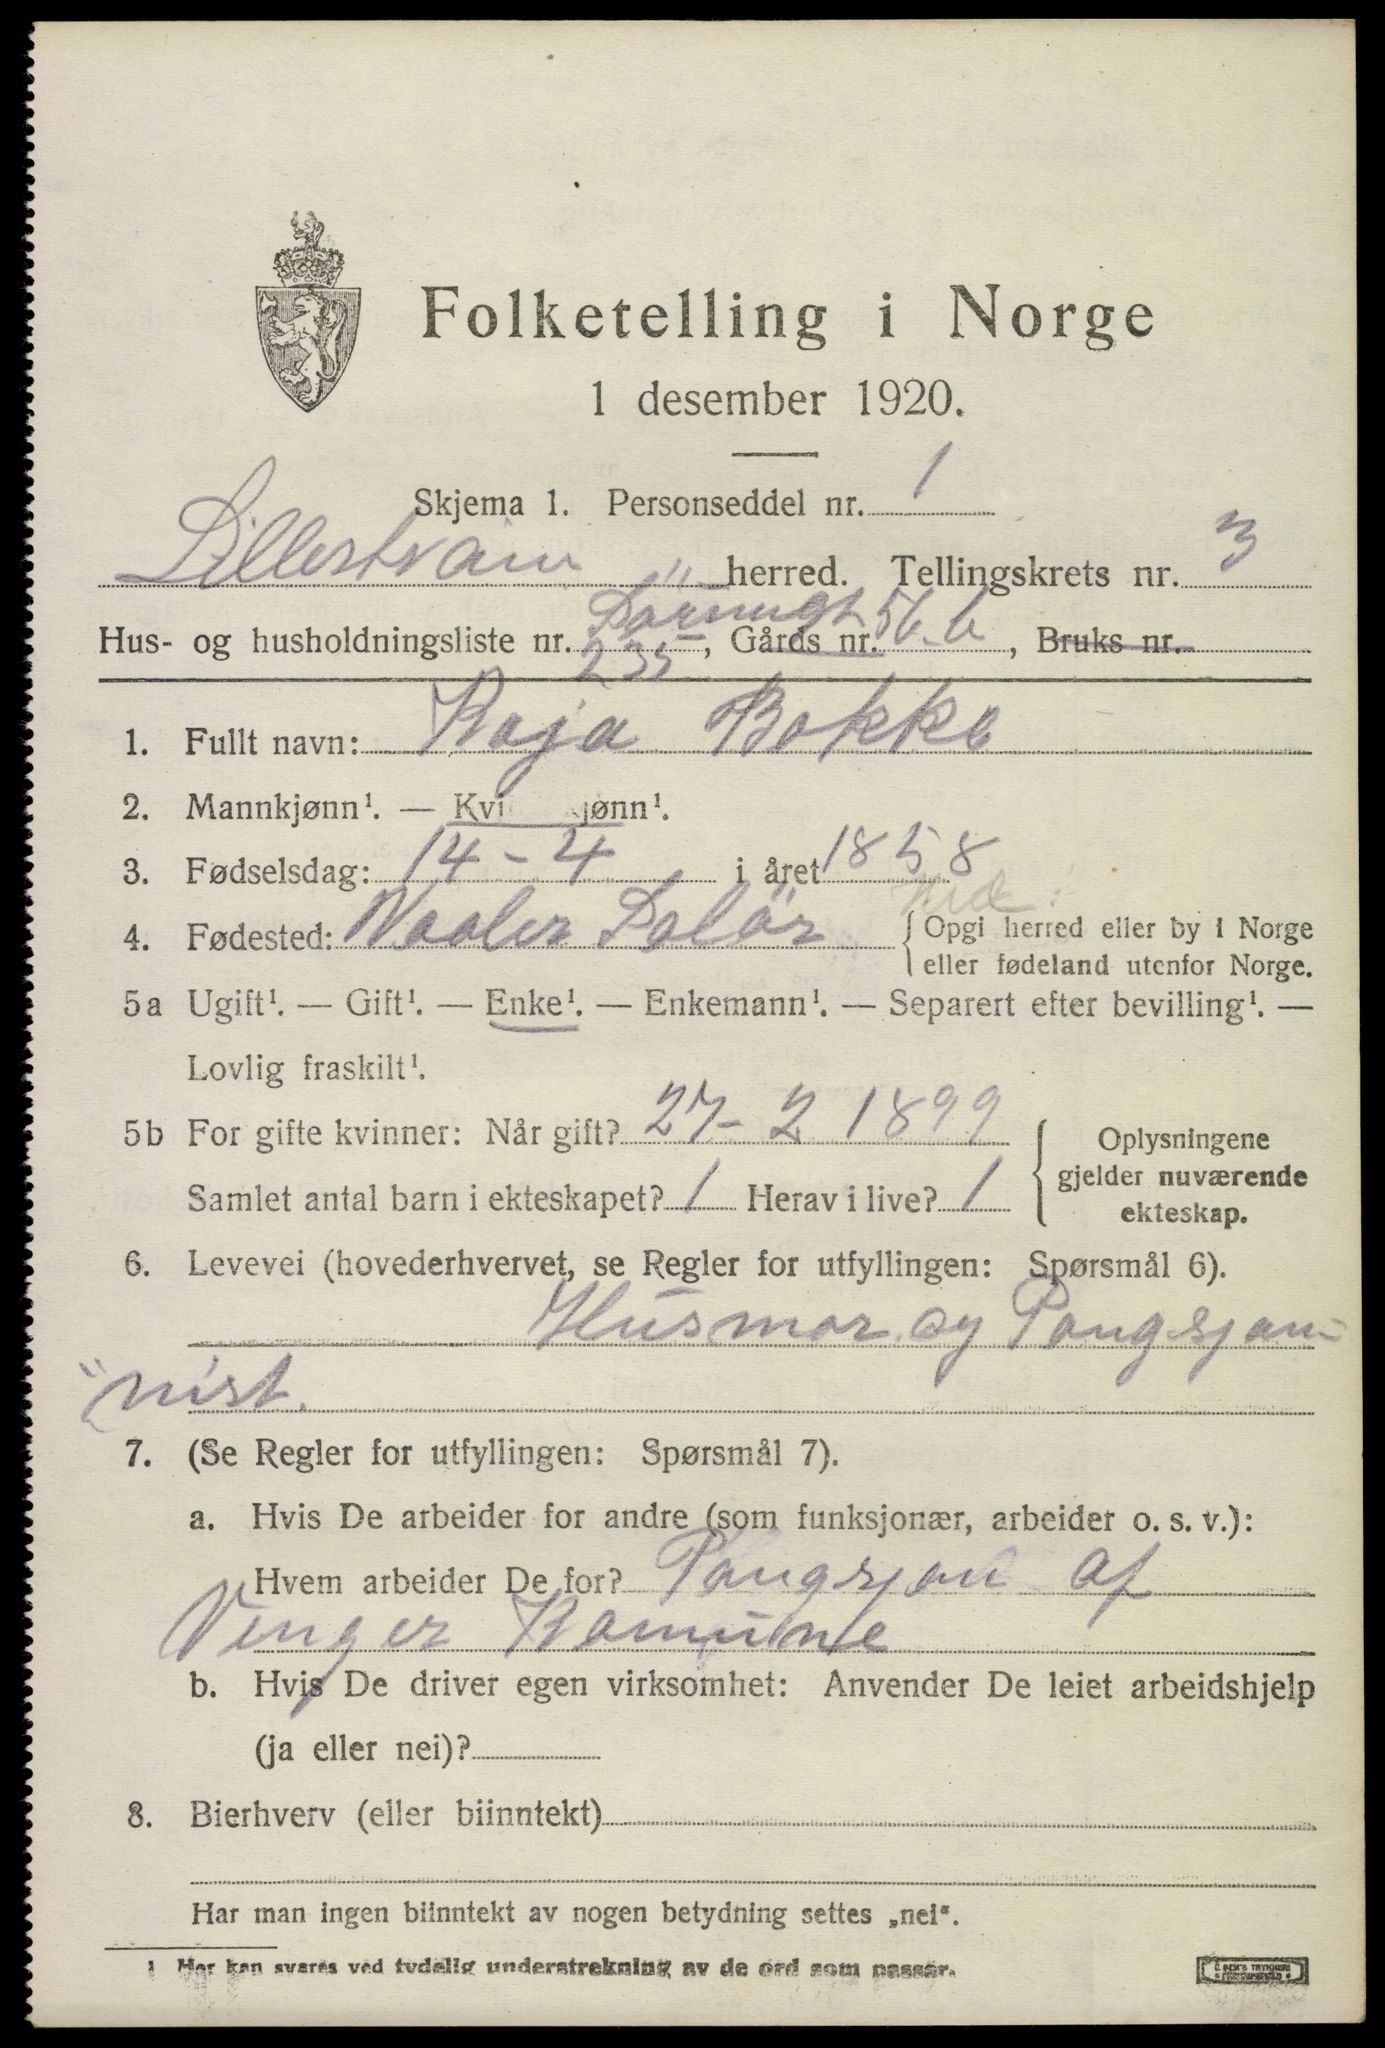 Folketelling i Norge
1 desember 1920.
Skjema 1. Personseddel nr. 1
Lillestrøm herred. Tellingskrets nr. 3
Hus- og husholdningsliste nr. 235, Gårds nr. 56 b, Bruks nr.
1. Fullt navn: Kaja Bakke
2. Mannkjønn¹. — Kvi jønn¹.
3. Fødselsdag: 14-4 i året 1858
4. Fødested: Vaaler Solör { Opgi herred eller by i Norge
eller fødeland utenfor Norge.
5a Ugift¹. — Gift¹. — Enke¹. — Enkemann¹. — Separert efter bevilling¹. —
Lovlig fraskilt¹.
5b For gifte kvinner: Når gift? 27-2 1899
Samlet antal barn i ekteskapet? 1 Herav i live? 1
Oplysningene
gjelder nuværende
ekteskap.
6. Levevei (hovederhvervet, se Regler for utfyllingen: Spørsmål 6).
Husmor og Pangsjon-
nist.
7. (Se Regler for utfyllingen: Spørsmål 7).
a. Hvis De arbeider for andre (som funksjonær, arbeider o. s. v.):
Hvem arbeider De for? Pangsjon af
Vinger Komune
b. Hvis De driver egen virksomhet: Anvender De leiet arbeidshjelp
(ja eller nei)?
8. Bierhverv (eller biinntekt)
Har man ingen biinntekt av nogen betydning settes „nei".
1 Her kan svares ved tydelig understrekning av de ord som passer.